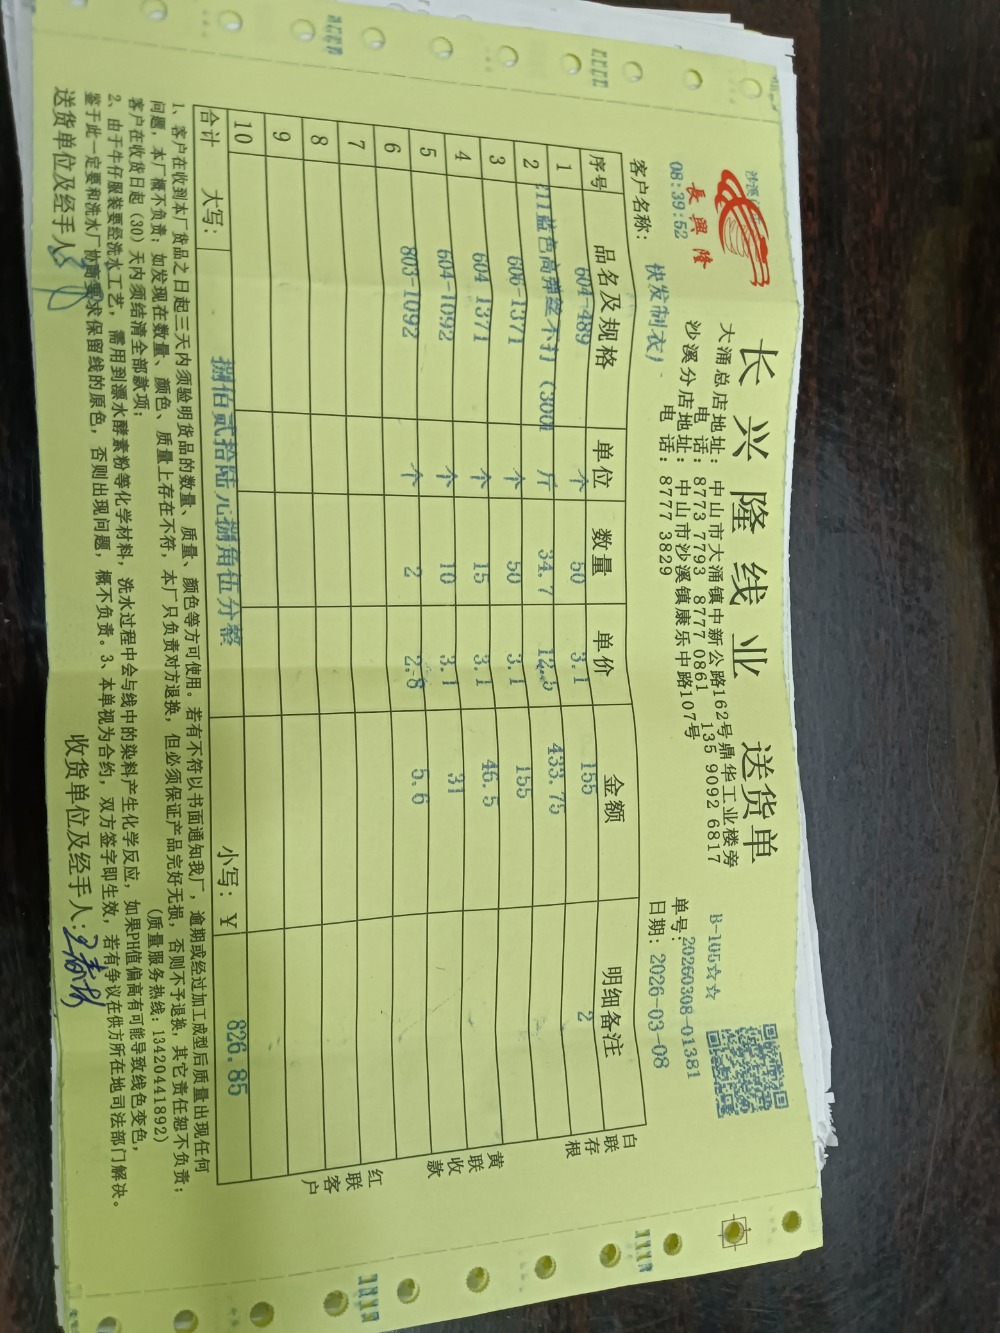 长兴隆线业 送货单
長興隆
大涌总店地址:中山市大涌镇中新公路162号鼎华工业楼旁
电 话:8773 7793 8777 0861 135 9092 6817
沙溪分店地址:中山市沙溪镇康乐中路107号
电 话:8777 3829
B-105☆☆
08:39:52
单号:20260308-01381
客户名称: 快发制衣厂
日期:2026-03-08
序号 品名及规格 单位 数量 单价 金额 明细备注
1 604-489 个 50 3.1 155 2
2 蓝色高弹丝不打(300 斤 34.7 12.5 433.75
3 606-1371 个 50 3.1 155
4 604 1371 个 15 3.1 46.5
5 604-1092 个 10 3.1 31
6 803-1092 个 2 2.8 5.6
7
8
9
10
合计 大写: 捌佰贰拾陆元捌角伍分整 小写:¥ 826.85
白联存根
黄联收款
红联客户
1、客户在收到本厂货品之日起三天内须验明货品的数量、质量、颜色等方可使用。若有不符以书面通知我厂,逾期或经过加工成型后质量出现任何
问题,本厂概不负责;如发现在数量、颜色、质量上存在不符,本厂只负责对方退换,但必须保证产品完好无损,否则不予退换,其它责任恕不负责;
客户在收货日起(30)天内须结清全部款项; (质量服务热线:13420441892)
2、由于牛仔服装要经洗水工艺,需用到漂水酵素粉等化学材料,洗水过程中会与线中的染料产生化学反应,如果PH值偏高有可能导致线色变色,
鉴于此一定要和洗水厂协商要求保留线的原色,否则出现问题,概不负责。3、本单视为合约,双方签字即生效,若有争议在供方所在地司法部门解决。
送货单位及经手人: 收货单位及经手人: